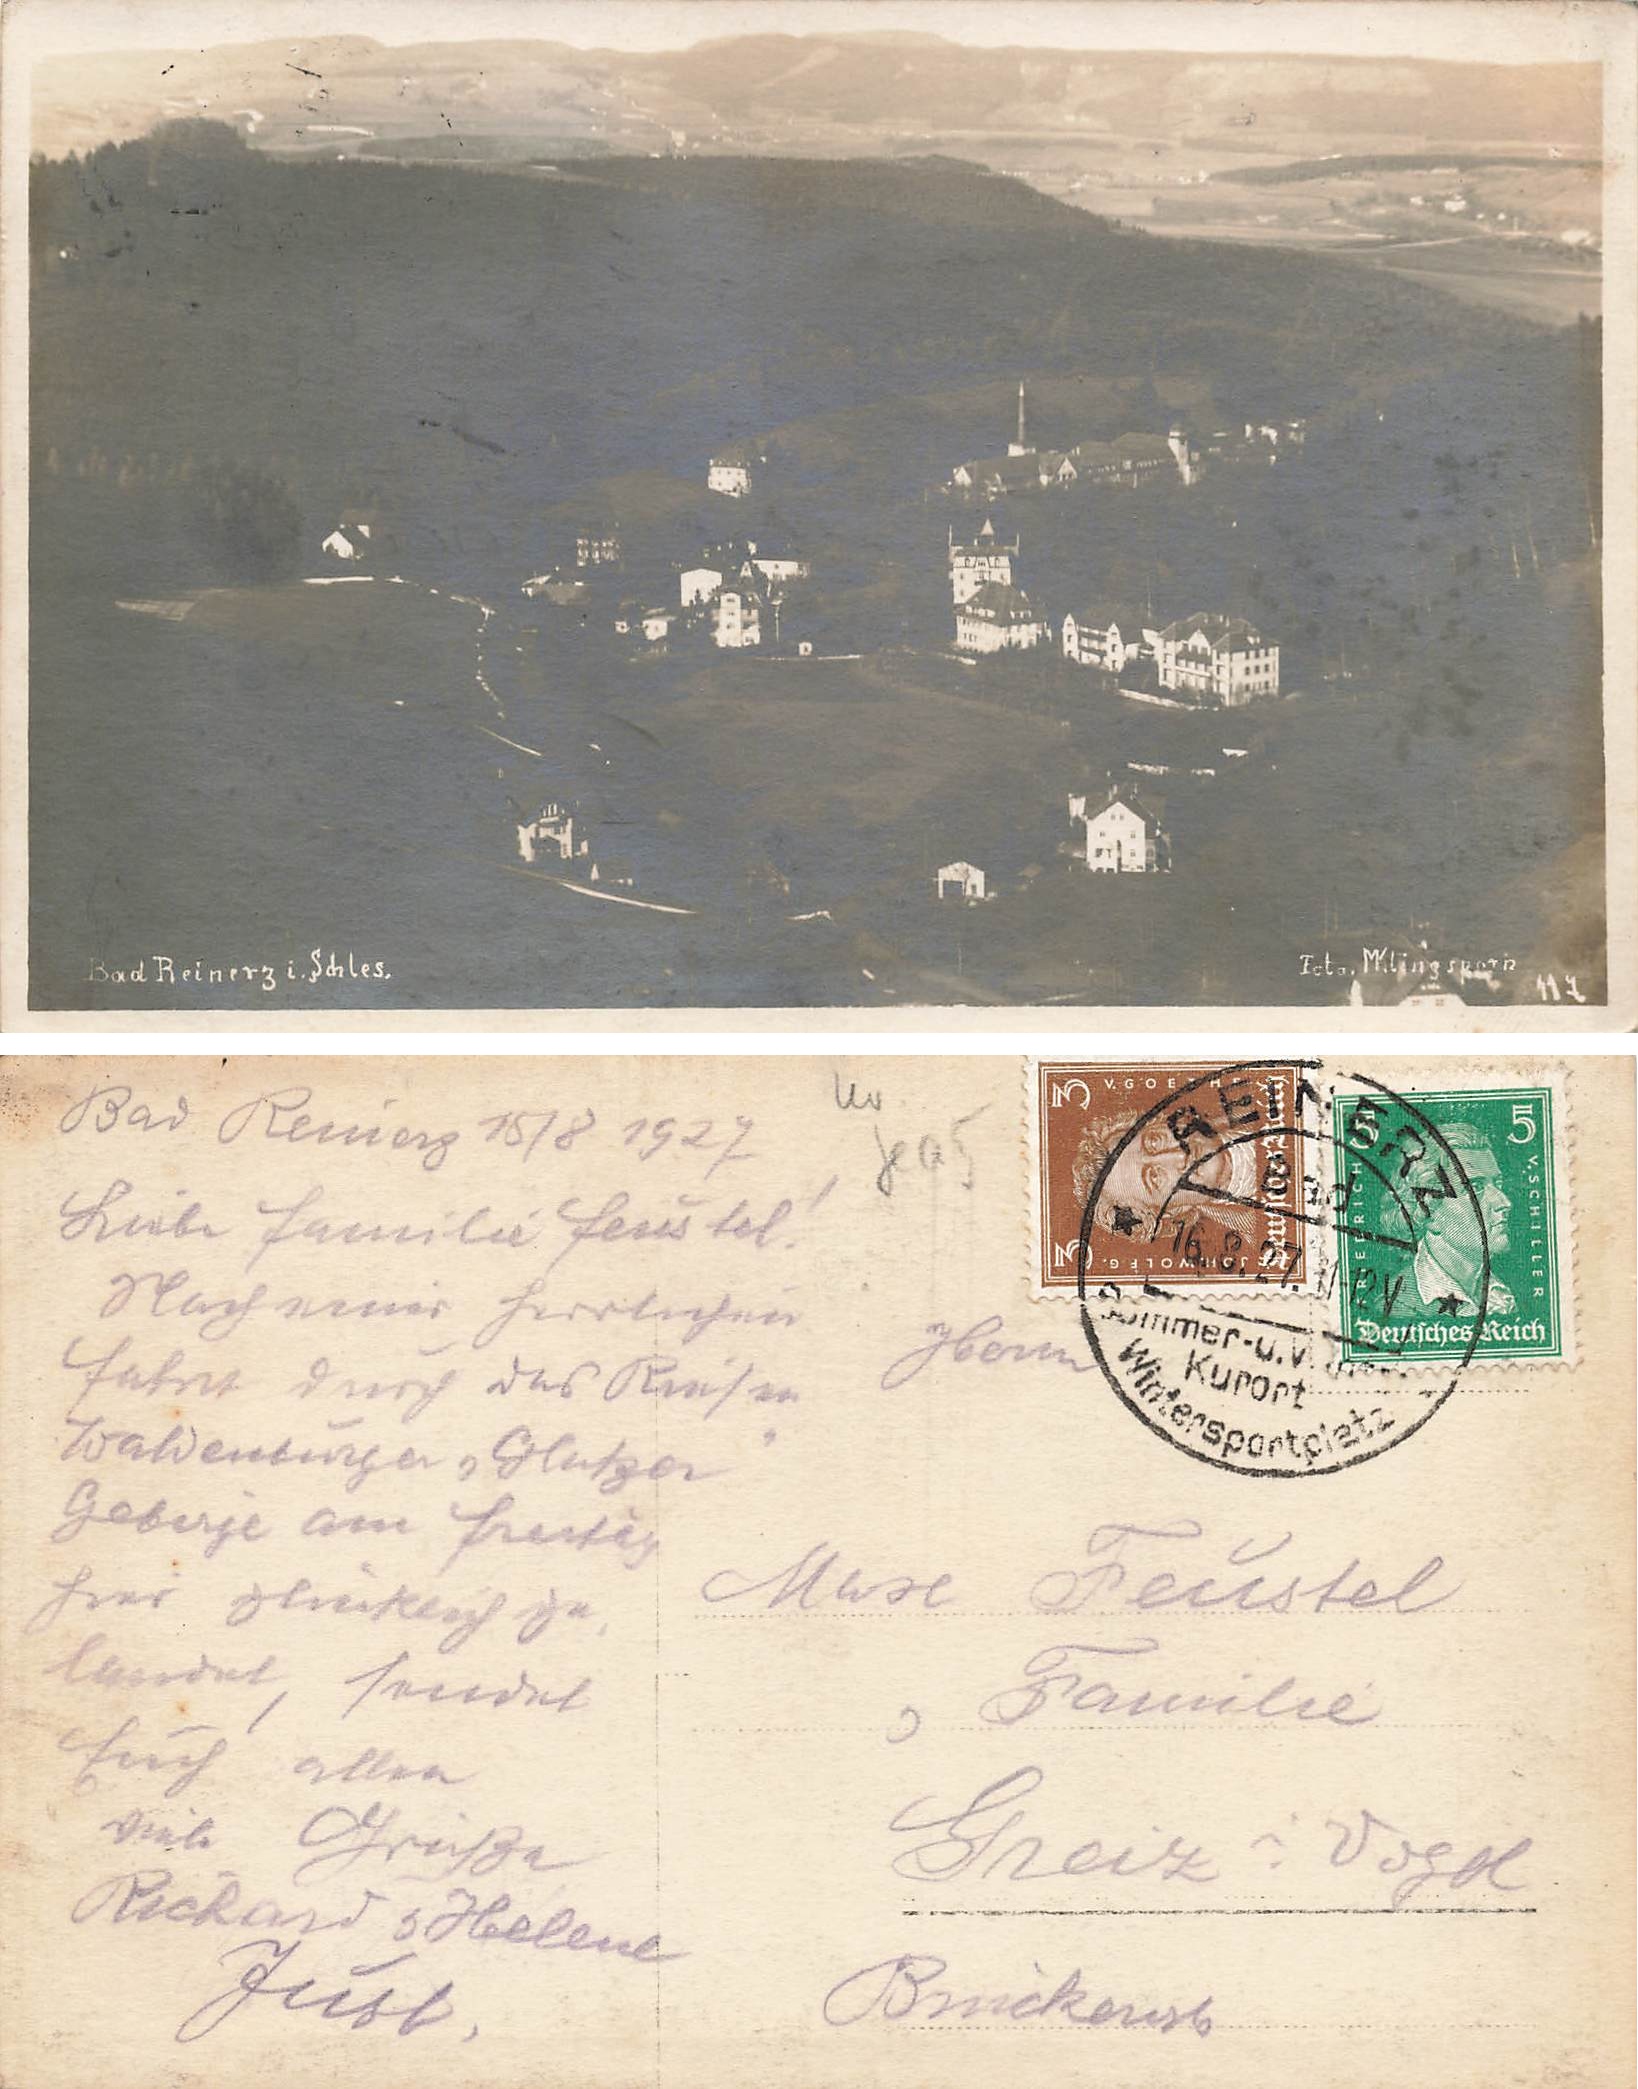 Bad Reinerz i. Schles.
Foto. Klingsporn
117
Bad Reinerz 15/8 1927
Liebe Familie Feustel!
Nach einer herrlichen
Fahrt durch das Riesen
Waldenburger u Glatzer
Gebirge am Freitag
hier glücklich ge-
landet, sendet
Euch allen
viele Grüße
Richard u Helene
Just.
3 V. GOETHE
Deutsches Reich
3 JOH. WOLFG.
5 5
FRIEDRICH V. SCHILLER
Deutsches Reich
REINERZ
Bad
16.8.27. 11-12V
Kurort
Wintersportplatz
Herrn
Max Feustel
u Familie
Greiz i Vogtl
Brückenstr